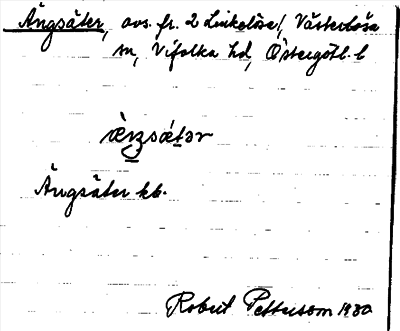 Ängsäter, avs. fr. 2 Linkelösa, Västerlösa
sn, Vifolka hd, Östergötl. l
Ängsäter kb.
Robert Pettersson 1930